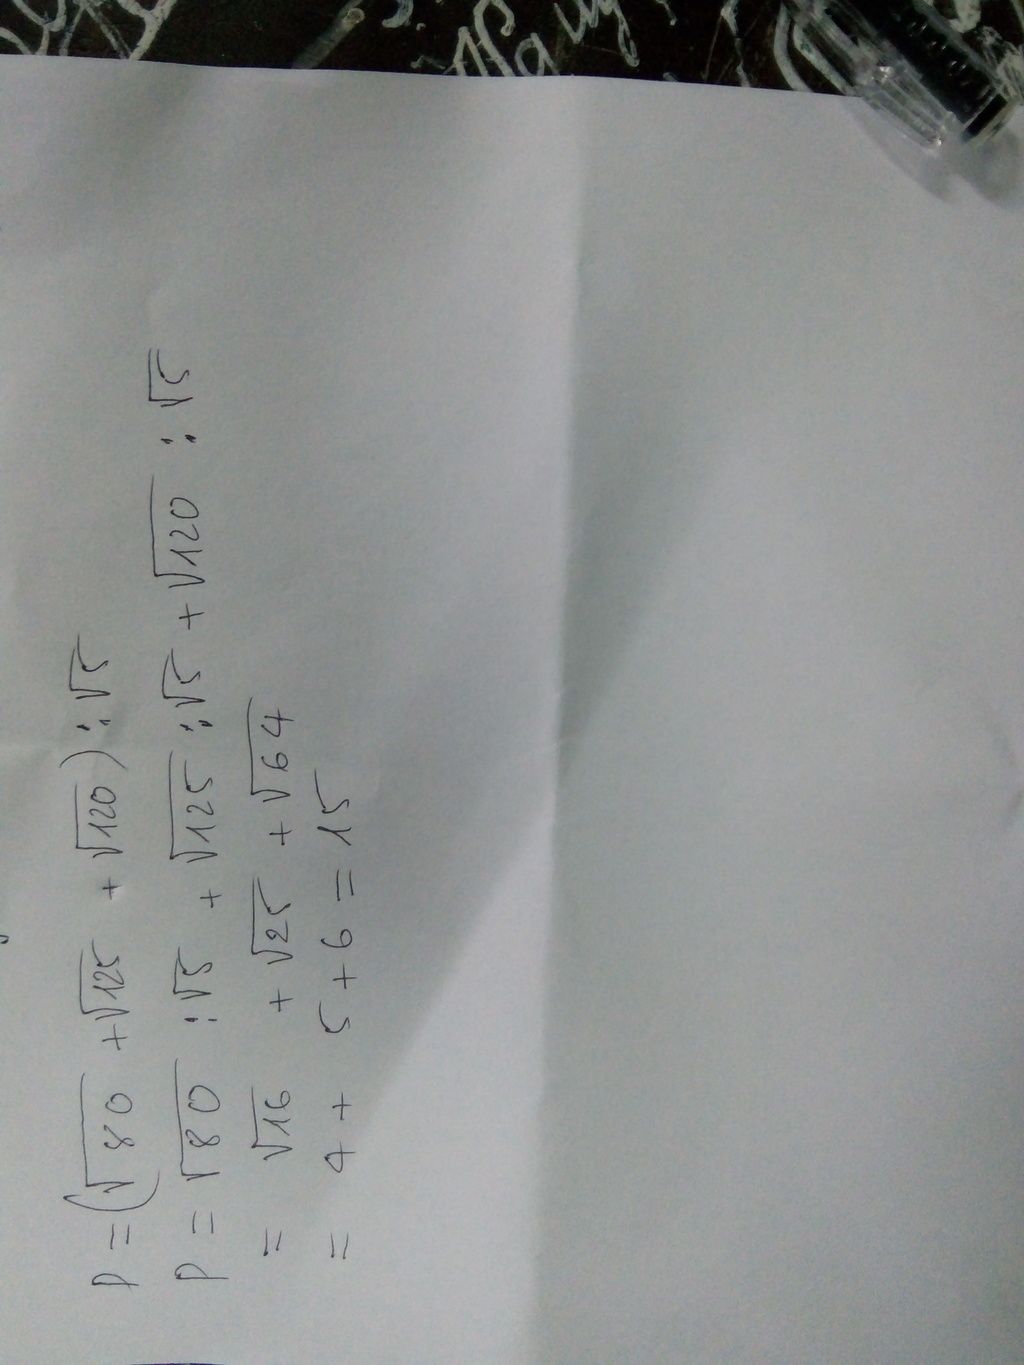 P = (√80 + √125 + √120) : √5
P = √80 : √5 + √125 : √5 + √120 : √5
= √16 + √25 + √64
= 4 + 5 + 6 = 15